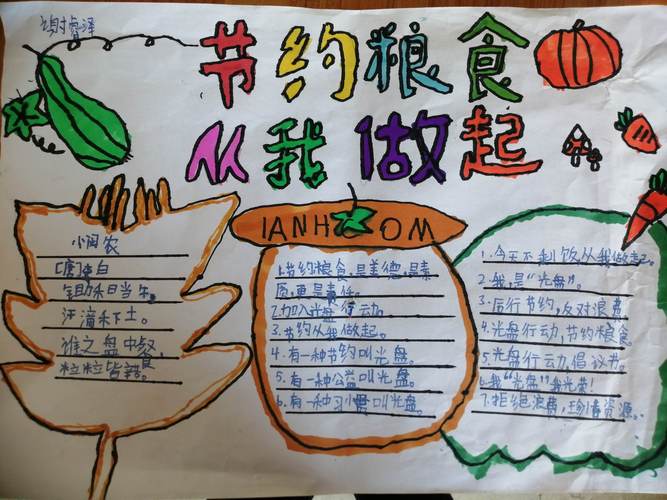 节约粮食
从我做起
[唐]李白
锄禾日当午。
汗滴禾下土。
谁之盘中餐,
粒粒皆
IANH OM
1.节约粮食,是美德,是素
质,更是责任。
2.加入光盘行动,
3.节约从我做起。
4.有一种节约叫光盘。
5.有一种公益叫光盘。
6.有一种习惯叫光盘。
1.今天不剩饭从我做起。
2.我是“光盘”。
3.厉行节约,反对浪费
4.光盘行动,节约粮食。
5.光盘行动,倡议书。
6.我“光盘”我光荣!
7.拒绝浪费,珍惜资源。